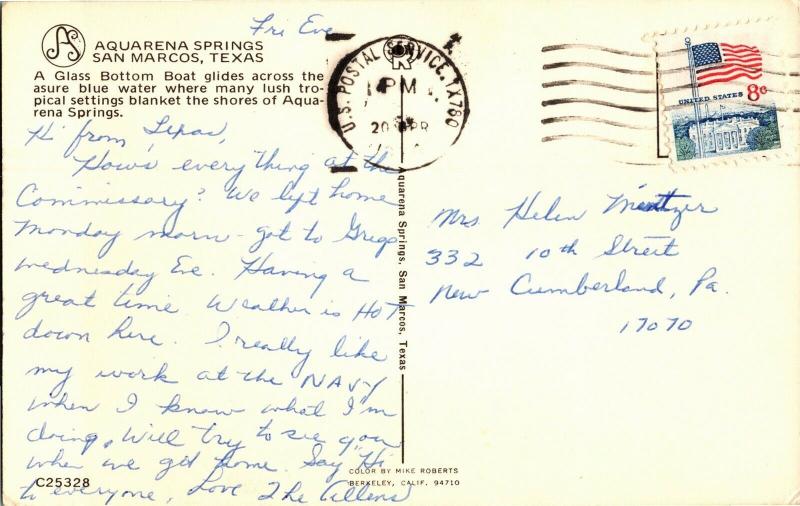 Fri Eve
AQUARENA SPRINGS
SAN MARCOS, TEXAS
A Glass Bottom Boat glides across the
asure blue water where many lush tro-
pical settings blanket the shores of Aqua-
rena Springs.
Hi from Texas,
Hows everything at the
Commissary? We left home
Monday morn - got to Gregs
Wednesday Eve. Having a
great time. Weather is HOT
down here. I really like
my work at the NAVY
when I know what I'm
doing. Will try to see you
when we get home. Say "Hi"
to everyone, Love The Allens
C25328
Aquarena Springs, San Marcos, Texas
COLOR BY MIKE ROBERTS
BERKELEY, CALIF. 94710
U.S. POSTAL SERVICE, TX 780
PM
20 APR
UNITED STATES 8c
Mrs Helen Mentzer
332 10th Street
New Cumberland, Pa.
17070